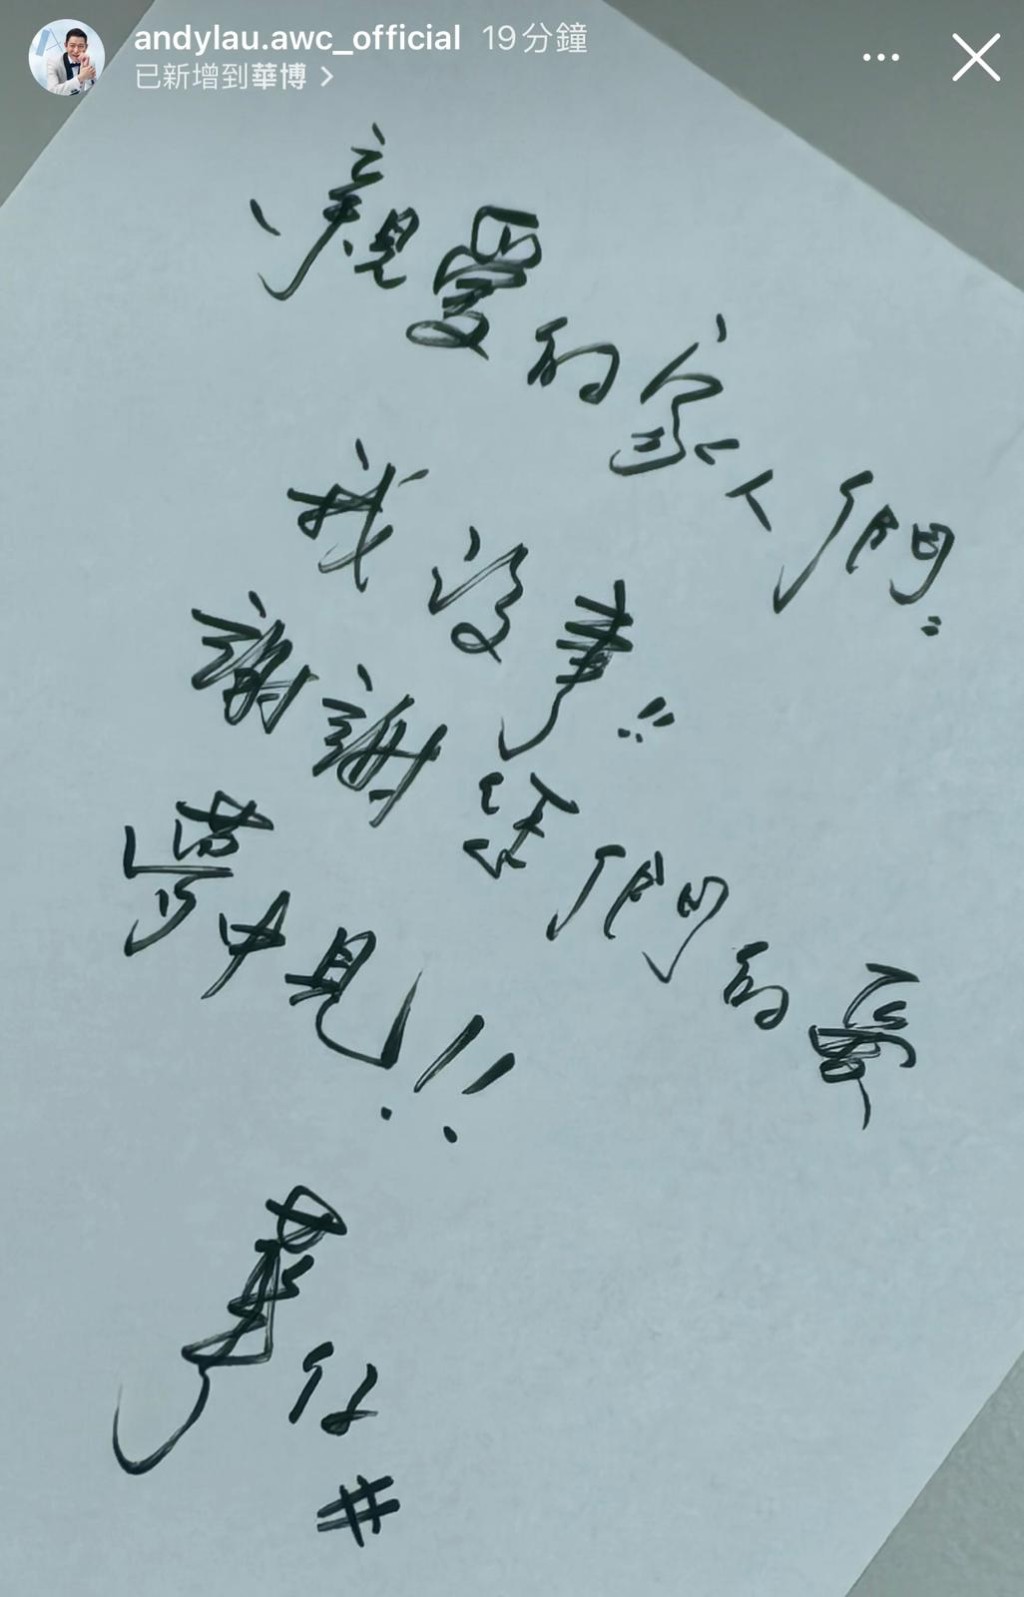 andylau.awc_official 19分鐘
已新增到華博 >
親愛的家人們：
我沒事!!
謝謝您們的愛
夢中見!!
華仔
#